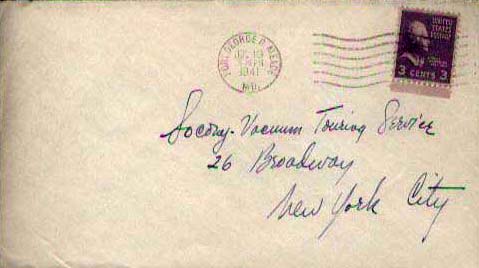 FORT GEORGE G. MEADE
1941
MD.
UNITED
STATES
POSTAGE
3 CENTS 3
Socony-Vacuum Touring Service
26 Broadway
New York City